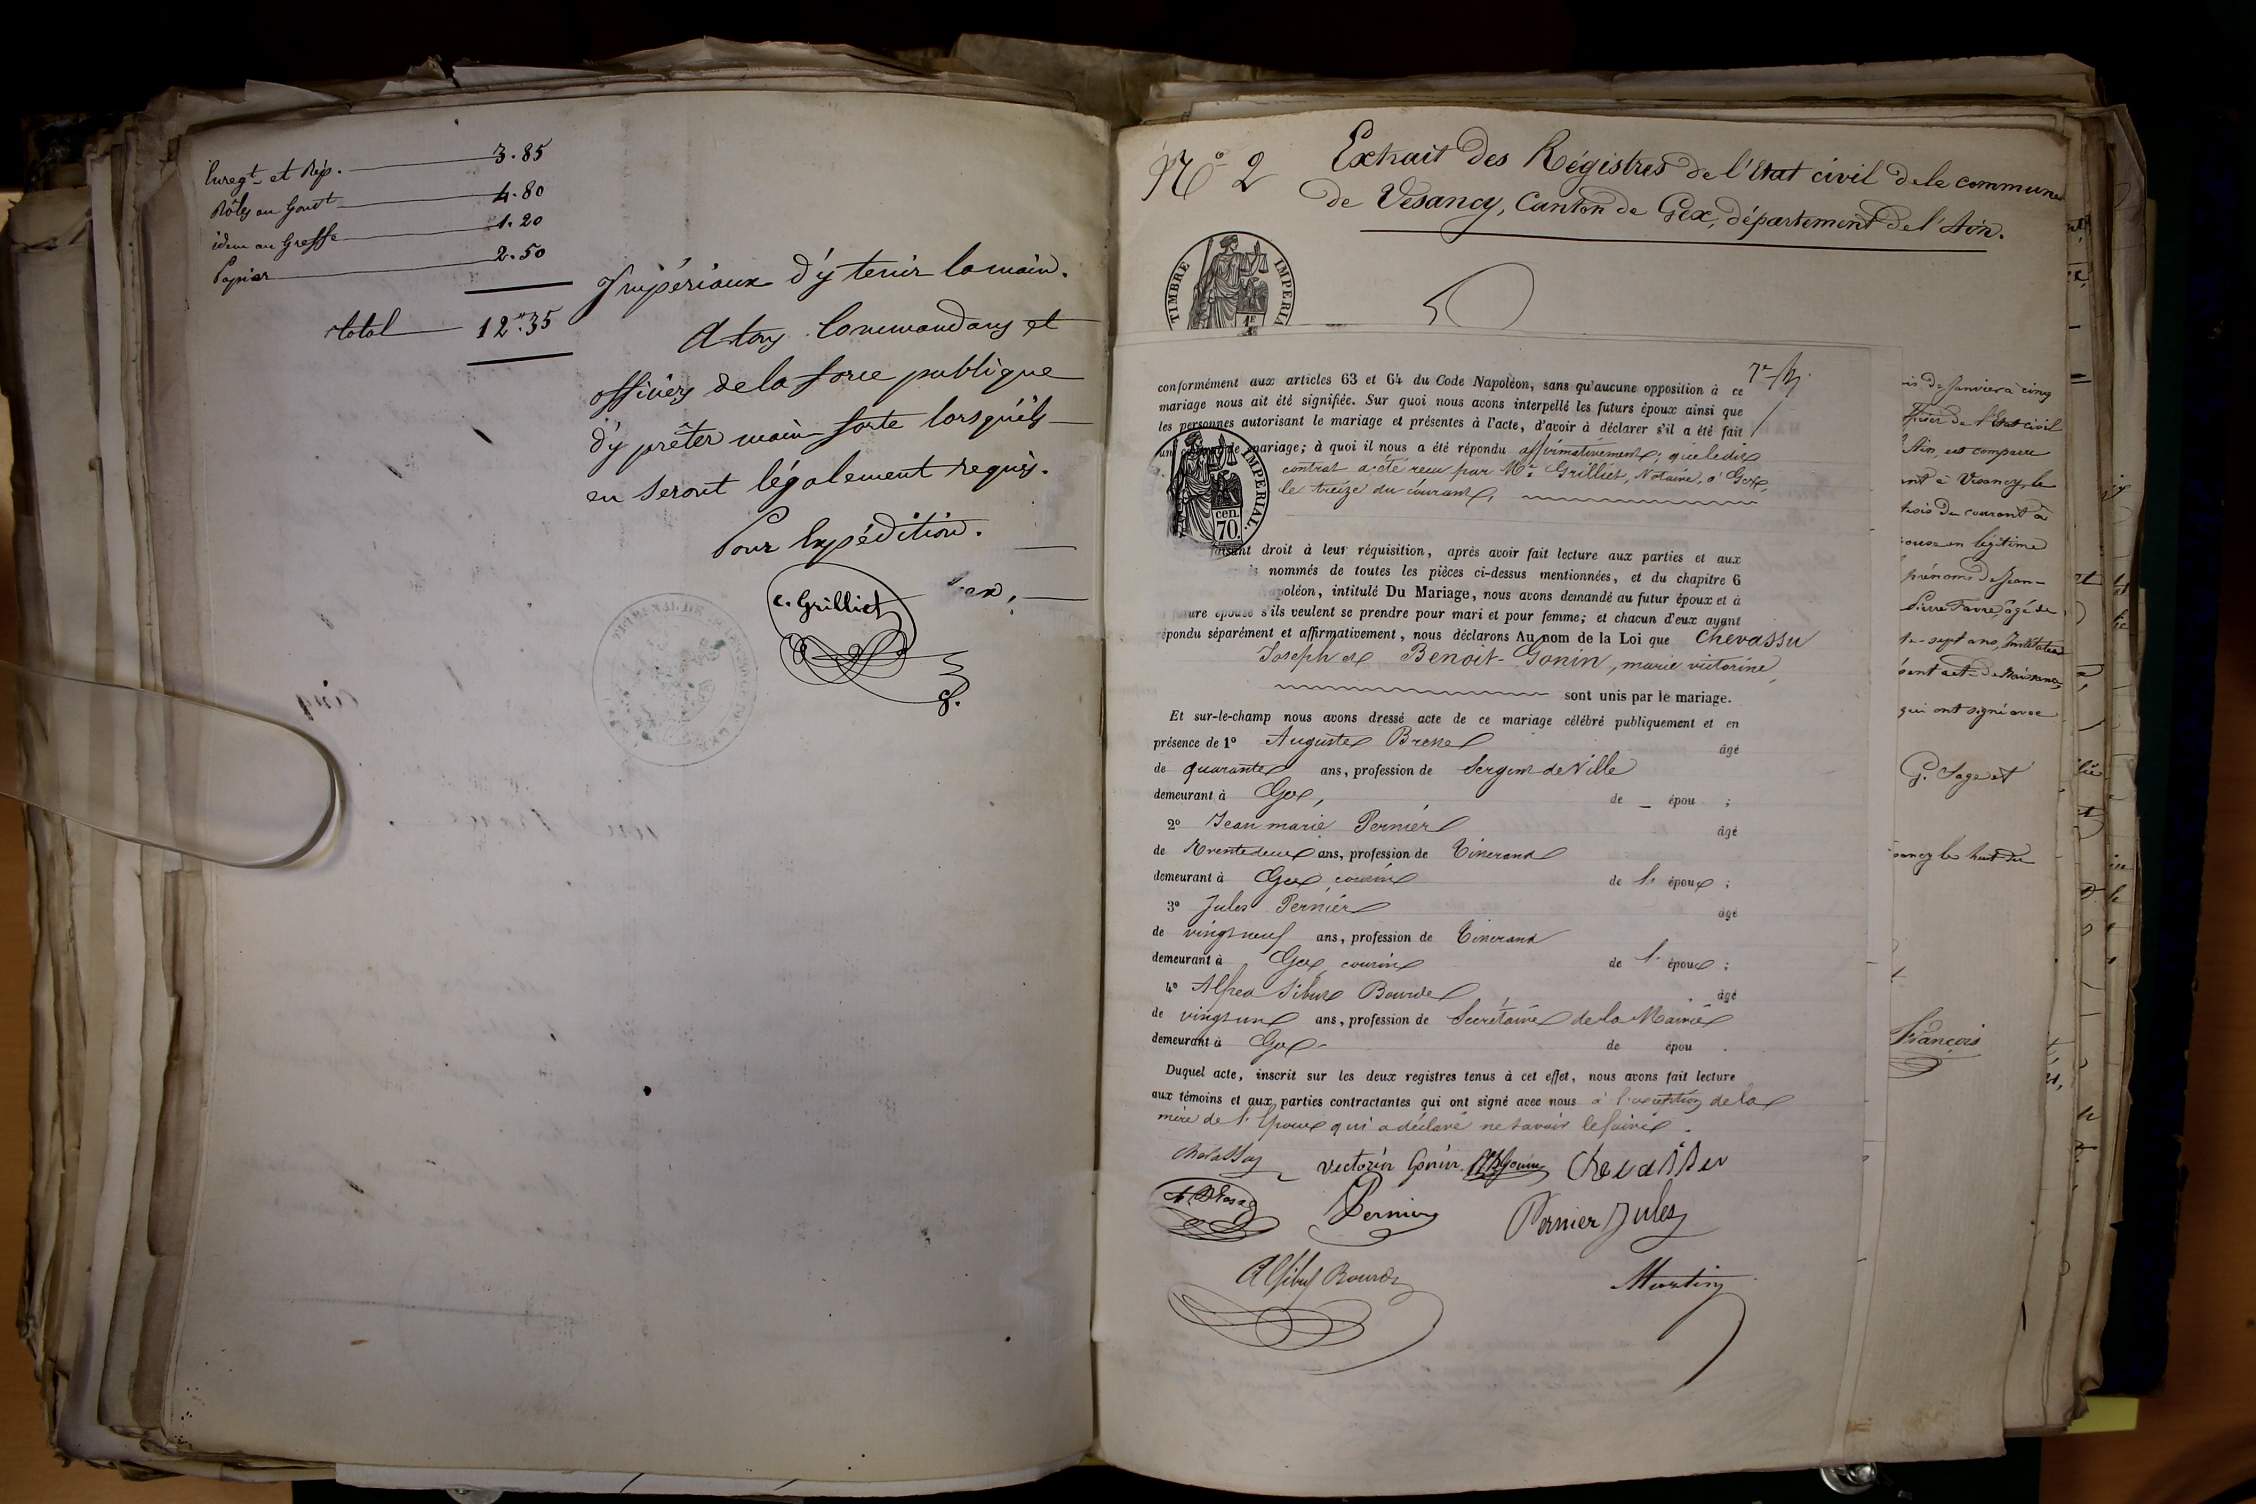 Enregt. et Rép. 3.85
Rôles au 4.80
idem au Greffe 1.20
Papier 2.50
total 12.35
Impériaux d'y tenir la main.
A tous Commandans et
officiers de la force publique
d'y prêter main forte lorsqu'ils
en seront légalement requis.
Pour Expédition.
C. Grilliet
N° 2
Extrait des Régistres de l'Etat civil de la commune
de Vesancy, Canton de Gex, département de l'Ain.
TIMBRE IMPERIA
conformément aux articles 63 et 64 du Code Napoléon, sans qu'aucune opposition à ce
mariage nous ait été signifiée. Sur quoi nous avons interpellé les futurs époux ainsi que
les personnes autorisant le mariage et présentes à l'acte, d'avoir à déclarer s'il a été fait
un de mariage; à quoi il nous a été répondu affirmativement; que ledit
contrat a été reçu par Mr. Grilliet, Notaire, à Gex,
le treize du courant,
IMPERIAL.
cen.
70.
faisant droit à leur réquisition, après avoir fait lecture aux parties et aux
nommés de toutes les pièces ci-dessus mentionnées, et du chapitre 6
apoléon, intitulé Du Mariage, nous avons demandé au futur époux et à
future épouse s'ils veulent se prendre pour mari et pour femme; et chacun d'eux ayant
épondu séparément et affirmativement, nous déclarons Au nom de la Loi que Chevassu
Joseph et Benoit-Gonin, marie victorine,
sont unis par le mariage.
Et sur-le-champ nous avons dressé acte de ce mariage célébré publiquement et en
présence de 1° Auguste âgé
de quarante ans, profession de Sergent de Ville
demeurant à Gex, de — épou ;
2° Jean marie Pernier âgé
de trente deux ans, profession de Tisserand
demeurant à Gex cousin de l' époux ;
3° Jules Pernier âgé
de vingt neuf ans, profession de Tisserand
demeurant à Gex cousin de l' époux ;
4° Alfred Sibus Bourde âgé
de vingt un ans, profession de Secrétaire de la Mairie
demeurant à Gex. de épou .
Duquel acte, inscrit sur les deux registres tenus à cet effet, nous avons fait lecture
aux témoins et aux parties contractantes qui ont signé avec nous à l'exception de la
mère de l'époux qui a déclaré ne savoir le faire.
Chevassu Victorin Gonin Chevassu
Pernier Pernier Jules
Martin
is de Janvier à cinq
fficier de l'Etat civil
Ain, est comparu
ant à Vesancy, le
trois du courant à
épouse en légitime
prénoms de Jean-
Pierre Favre, âgé de
te-sept ans, Instituteur
ésent acte de Naissance,
qui ont signé avec
ancy le huit du
François